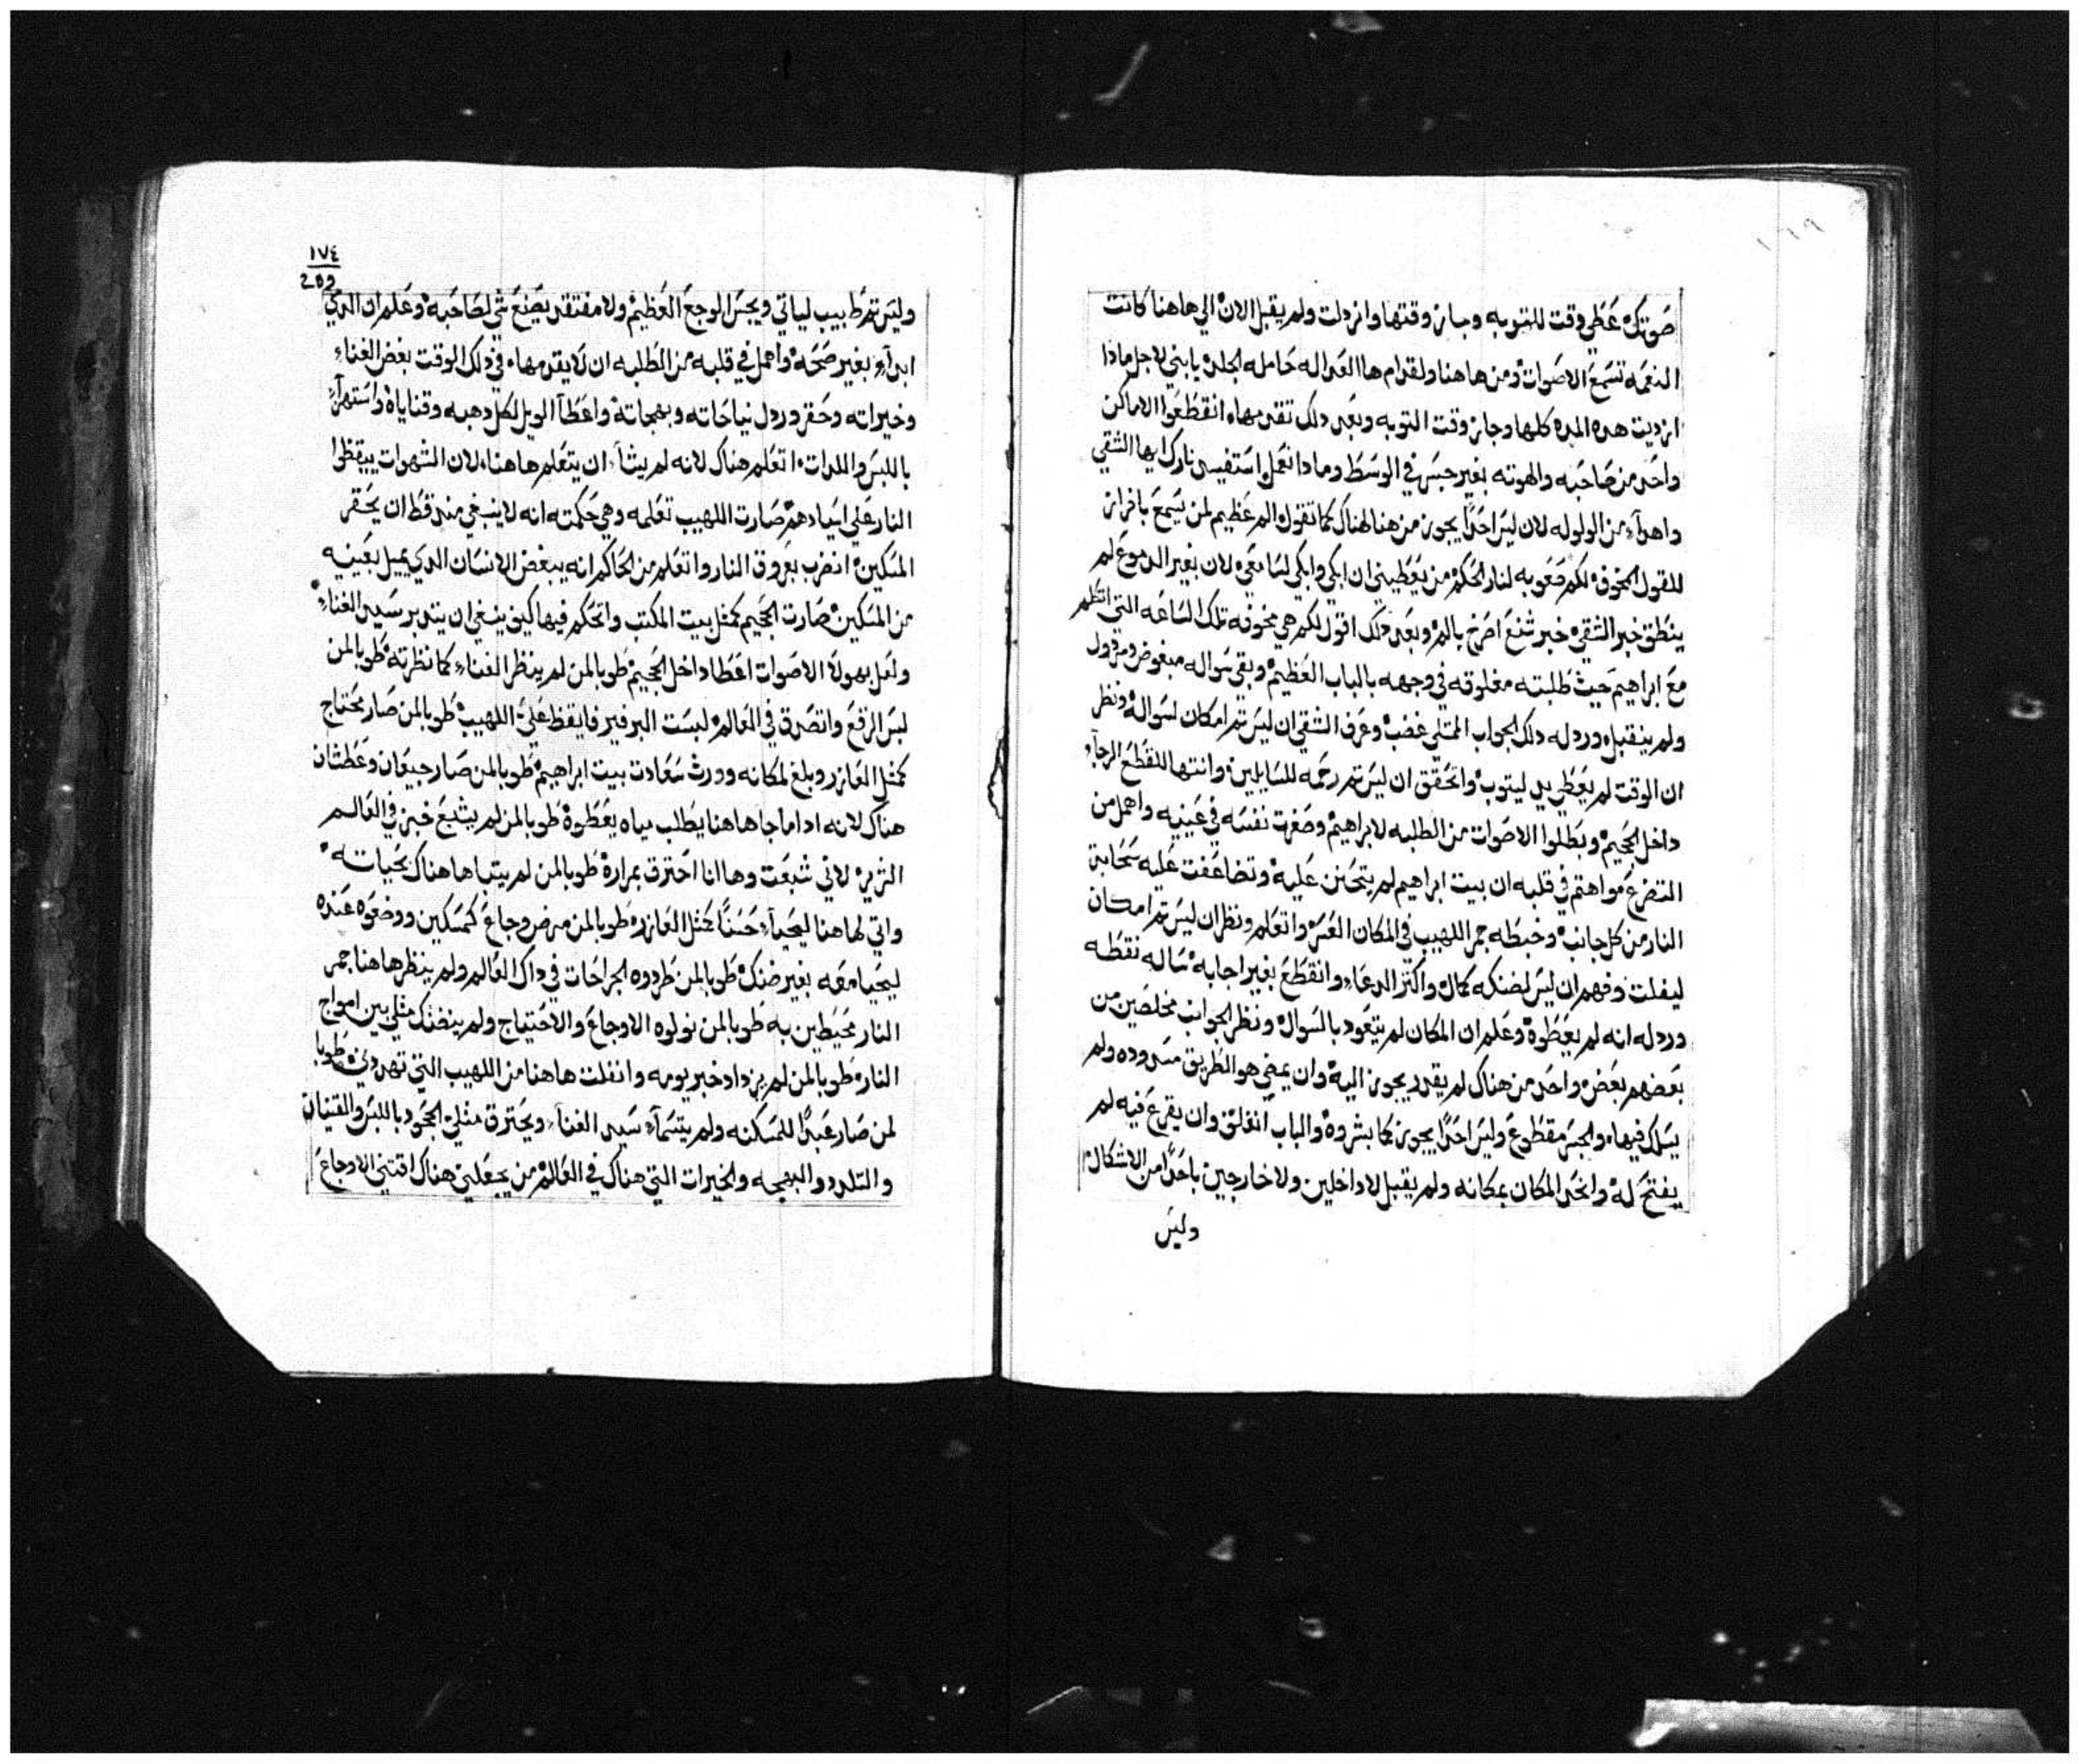 ١٦٩
صَوتك عَطي وقت للتوبه وجاز وقتها وازدلت ولم يقبل الان الي هاهنا كانت
النغمه تسمع الاصَوات ومن هاهنا ولقدام ها العداله حَامله الجلد يا بني لاجل ماذا
ازديت هده المده كلها وجاز وقت التوبه وبعَد دلك تتقدمها انقطعَوا الاماكن
واحَد من صَاحَبه والهوته بغير جسَر في الوسَط وما دا نعَمل استفيس نارك ايها الشقي
واهدآء من الولوله لان ليسَ احَدًا يجوز من هنا لهناك كما تقول المر عَظيم لمن يسَمعَ بافراز
للقول المخوف لكم فعَوبه لنار الحَكم من يعَطيني ان ابكي وابكي لسَامعَي لان بغير الدموعَ لم
ينطق خبر الشقي خبر شنعَ اصَرخ بالم وبعَد دلك اقول لكم هي مخوفه تلك السَاعَه التي اتظلم
معَ ابراهيم حَيث طلبته مغلوقه في وجهه بالباب العَظيم وبقي سَواله مبغوض ومرذول
ولم ينقبل وردله دلك الجواب الممتلي غضب وعَرف الشقي ان ليسَ تم امكان لسَواله ونظر
ان الوقت لم يعَطي يد ليتوب واتحَقق ان ليسَ تم رحَمه للسَايلين وانتها للقطعَ الرجآء
داخل الجَحيم وبطلوا الاصَوات من الطلبه لابراهيم وصَغرت نفسَه في عَينيه واهمل من
التضرعَ واهتم في قلبه ان بيت ابراهيم لم يتحَنن عَليه وتضاعَفت عَليه سَحَابة
النار من كل جانب وخبطه جمر اللهيب في المكان العَسر واتعَلم ونظر ان ليسَ تم امكان
ليفلت وفهم ان ليسَ لضنكه كمال واكتر الدعَاء وانقطعَ بغير اجابه سَاله نقطه
وردله انه لم يعَطوه وعَلم ان المكان لم يتعَود بالسَوال ونظر الجواب مخلصَين من
بعَضهم بعَض واحَد من هناك لم يقدر يجوز اليه وان يمضي هو الطريق مسَدوده ولم
يسَلك فيها والجسَر مقطوعَ وليسَ احَدًا يجوز كما بشروه والباب انغلق وان يقرعَ فيه لم
يفتح له وانحَد المكان بمكانه ولم يقبل لا داخلين ولا خارجين باحَدًا من الاشكال
وليسَ
١٧٤
209
وليسَ تم طبيب لياتي ويجسَ الوجعَ العَظيم ولا مفتقد يصَنعَ شي لصَاحَبه وعَلم ان الدي
ابدآء بغير صَحَه واهمل في قلبه من الطلبه ان لا يقدمها في دلك الوقت بغض الغناء
وخيراته وحَقر وردل نياحَاته وبهجاته واعَطآ الويل لكل دهبه وقناياه واستهزآء
باللبسَ واللدات اتعَلم هناك لانه لم يشآ ان يتعَلم هاهنا لان الشهوات ييقظوا
النار عَلي اسَيادهم صَارت اللهيب تعَلمه وهي حَكمته انه لا ينبغي منه قط ان يحَقر
المسَكين انضرب بعَروق النار واتعَلم من الحَاكم انه يبغض الانسَان الدي يميل بعَينيه
من المسَكين صَارت الجَحيم كمثل بيت المكتب واتحَكم فيها كيف ينبغي ان يتدبر سَيد الغناء
ولعَل بهولآ الاصَوات اعَطا داخل الجَحيم طوبا لمن لم ينظر الغناء كما نظرته طوبا لمن
لبسَ الرقعَ واتصَدق في العَالم لبسَت البرفير فايقظ عَليّ اللهيب طوبا لمن صَار محَتاج
كمثل العَازر وبلغ لمكانه وورث سَعَادت بيت ابراهيم طوبا لمن صَار جيعَان وعَطشان
هناك لانه ادا ما جا هاهنا يطلب مياه يعَطوه طوبا لمن لم يشبعَ خبز في العَالم
الترير لاني شبعَت وها انا احَترق بمراره طوبا لمن لم يتباها هناك بحَياته
واتي لهاهنا ليحَيآء حَسَنًا كمثل العَازر طوبا لمن مرض وجاعَ كمسَكين ووضعَوه عَنده
ليحَيا معَه بغير ضنك طوبا لمن طردوه الجراحَات في داك العَالم ولم ينظر هاهنا جمر
النار محَيطين به طوبا لمن نولوه الاوجاعَ والاحَتياج ولم ينضنك مثلي بين امواج
النار طوبا لمن لم يزداد خبز يومه وانفلت هاهنا من اللهيب التي تهددني طوبا
لمن صَار عَبدًا للمسَكنه ولم يتسَمآء سَيد الغنآء ويحَترق مثلي الجَود باللبسَ والقتيان
والتلدد والبهجه والخيرات التي هناك في العَالم من يجعَلني هناك اقتني الاوجاعَ